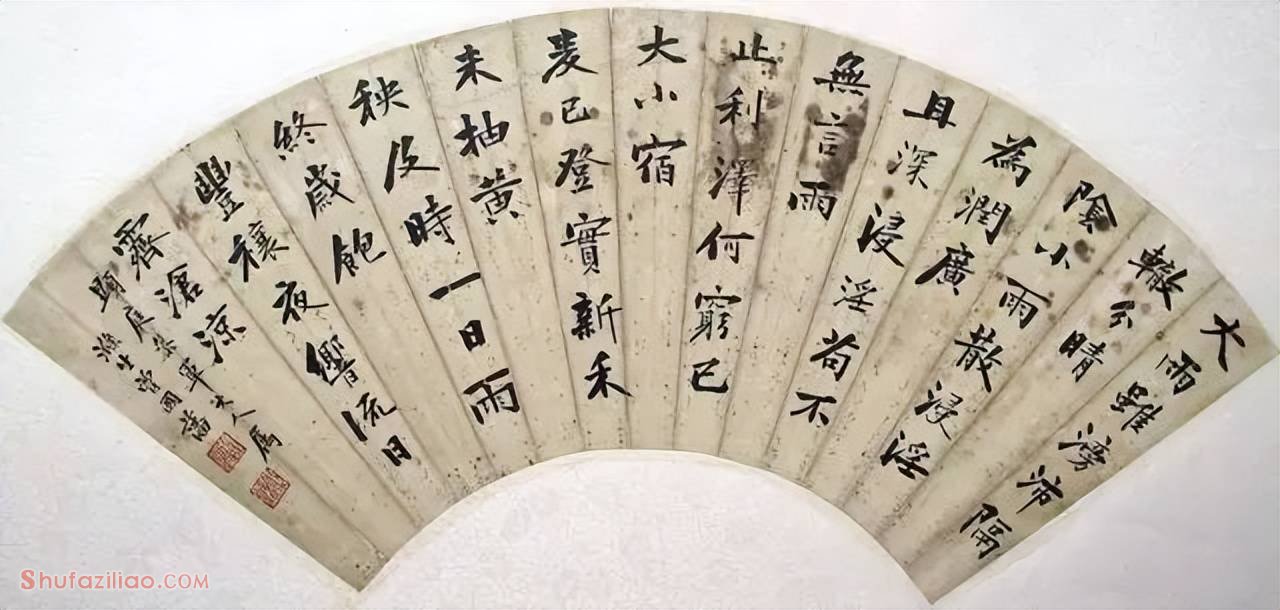 大雨雖滂沛隔
轍分晴
陰小雨散浸淫
為潤廣
且深浸淫苟不
無言雨
止利澤何窮已
大小宿
麦已登實新禾
未抽黃
秧及時一日雨
終歲飽
豐穰夜響流日
霽滄涼
庭參軍大人屬
滌生曾國藩
Shufaziliao.COM